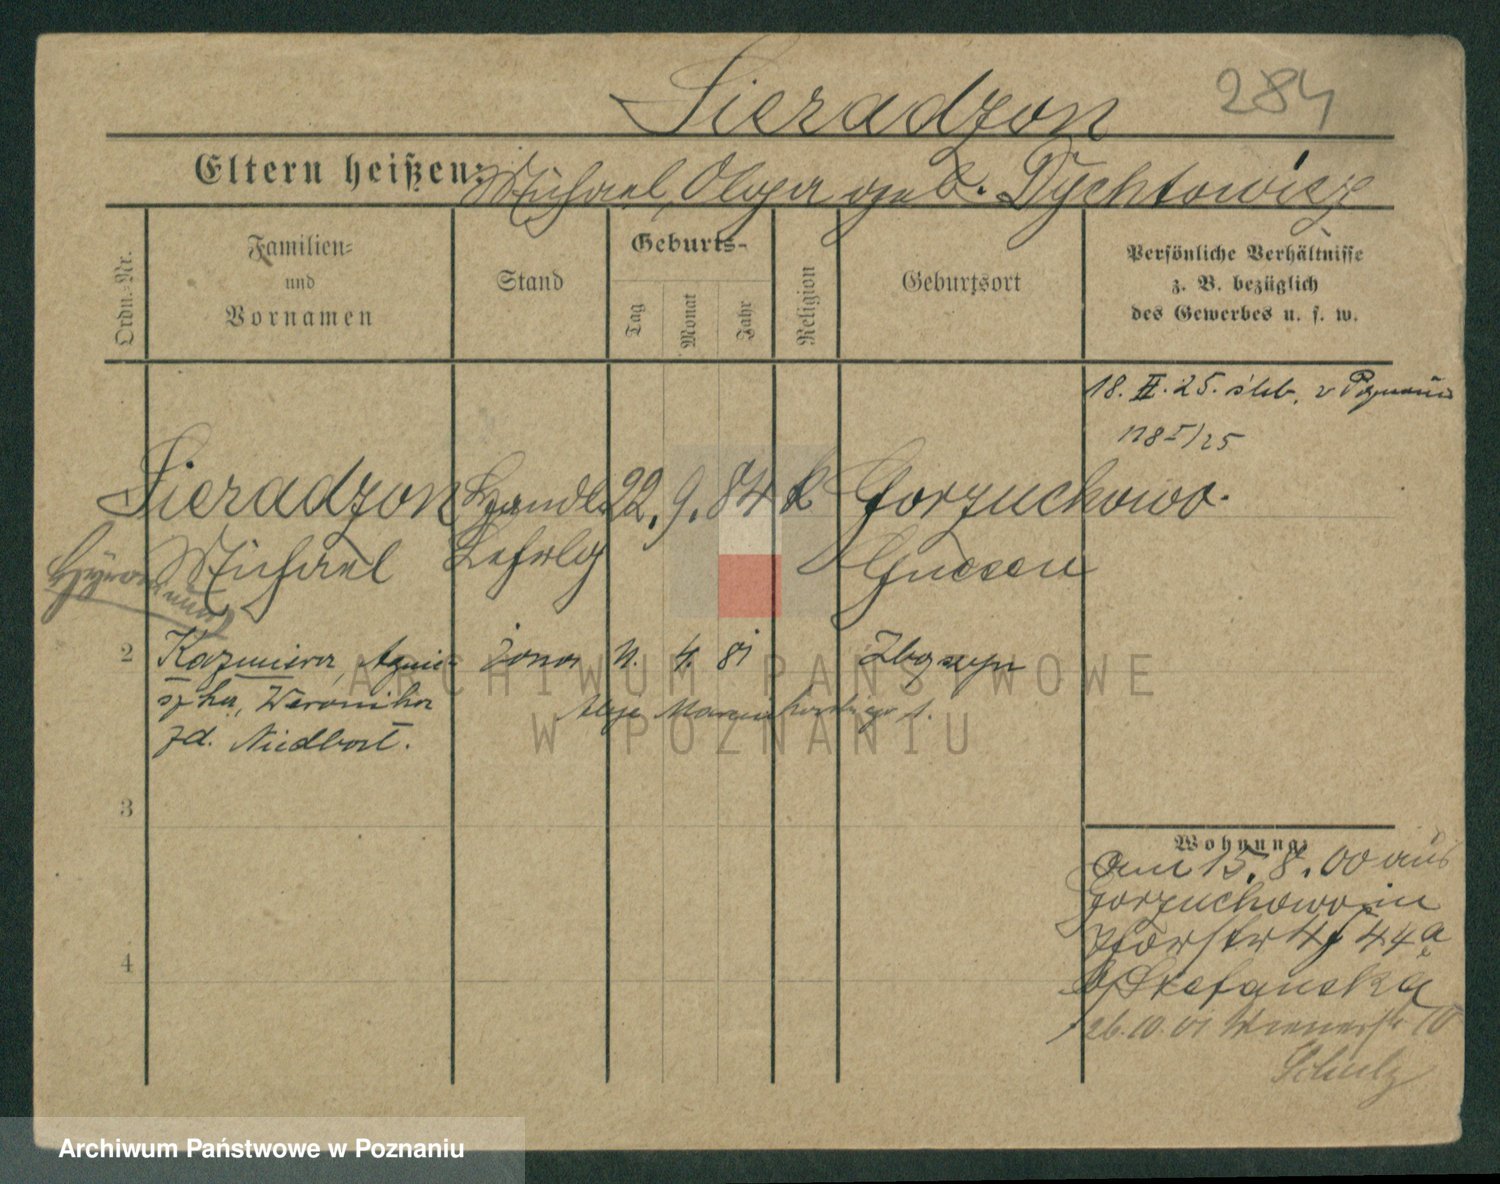 284
Sieradzon
Eltern heißen: Michael, Olga geb. Dychtowicz
Ordn.-Nr.
Familien-
und
Vornamen
Stand
Geburts-
Tag
Monat
Jahr
Religion
Geburtsort
Persönliche Verhältnisse
z. B. bezüglich
des Gewerbes u. s. w.
18. II. 25. ślub. w Poznaniu
Sieradzon Handl. 22. 9. 84 k Gorzuchowo.
Michael Lehrlg Gnesen
2 Kazimiera, Agnie- żona 11. 4. 81 Zbąszyn
szka, Weronika
zd. Niedbał.
3
4
Wohnung:
am 15. 8. 00 aus
Gorzuchowo in
44a
b/Stefanska
26.10.01 Wienerstr 10
Schulz
ARCHIWUM PAŃSTWOWE
W POZNANIU
Archiwum Państwowe w Poznaniu